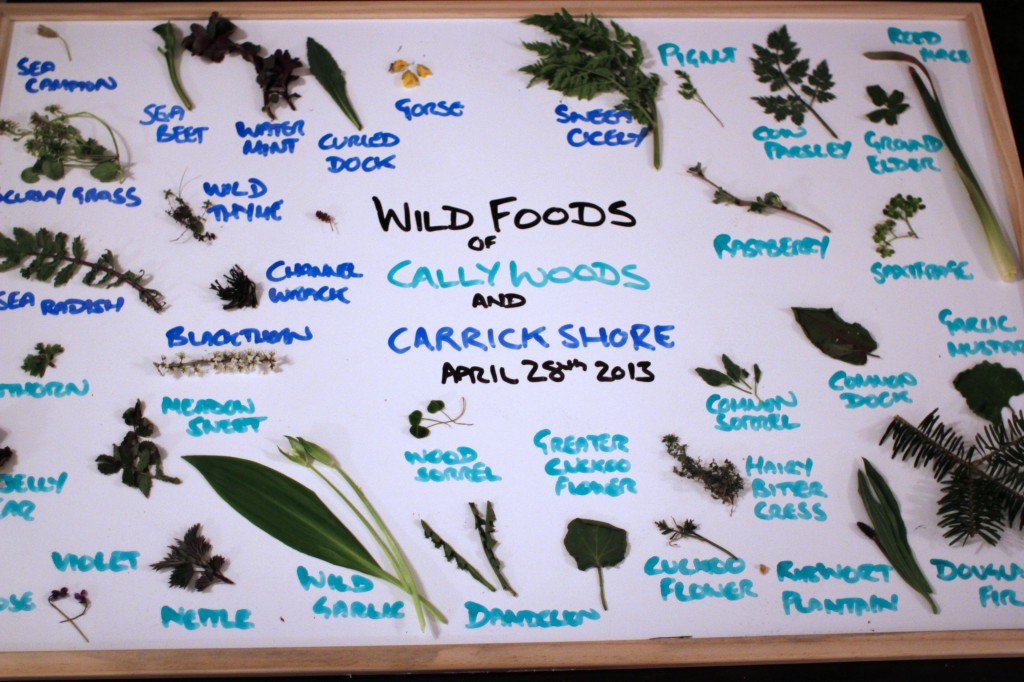 SEA
CAMPION
SEA
BEET
WATER
MINT
CURLED
DOCK
GORSE
SWEET
CICELY
PIGNUT
COW
PARSLEY
GROUND
ELDER
REED
MACE
SCURVY GRASS
WILD
THYME
WILD FOODS
OF
CALLY WOODS
AND
CARRICK SHORE
APRIL 28th 2013
RASPBERRY
SEA RADISH
CHANNEL
WRACK
BLACKTHORN
THORN
MEADOW
SWEET
WOOD
SORREL
GREATER
CUCKOO
FLOWER
COMMON
SORREL
COMMON
DOCK
GARLIC
MUSTARD
HAIRY
BITER
CRESS
JELLY
EAR
VIOLET
NETTLE
WILD
GARLIC
DANDELEN
CUCKOO
FLOWER
RIBWORT
PLANTAIN
DOUGLA
FIR